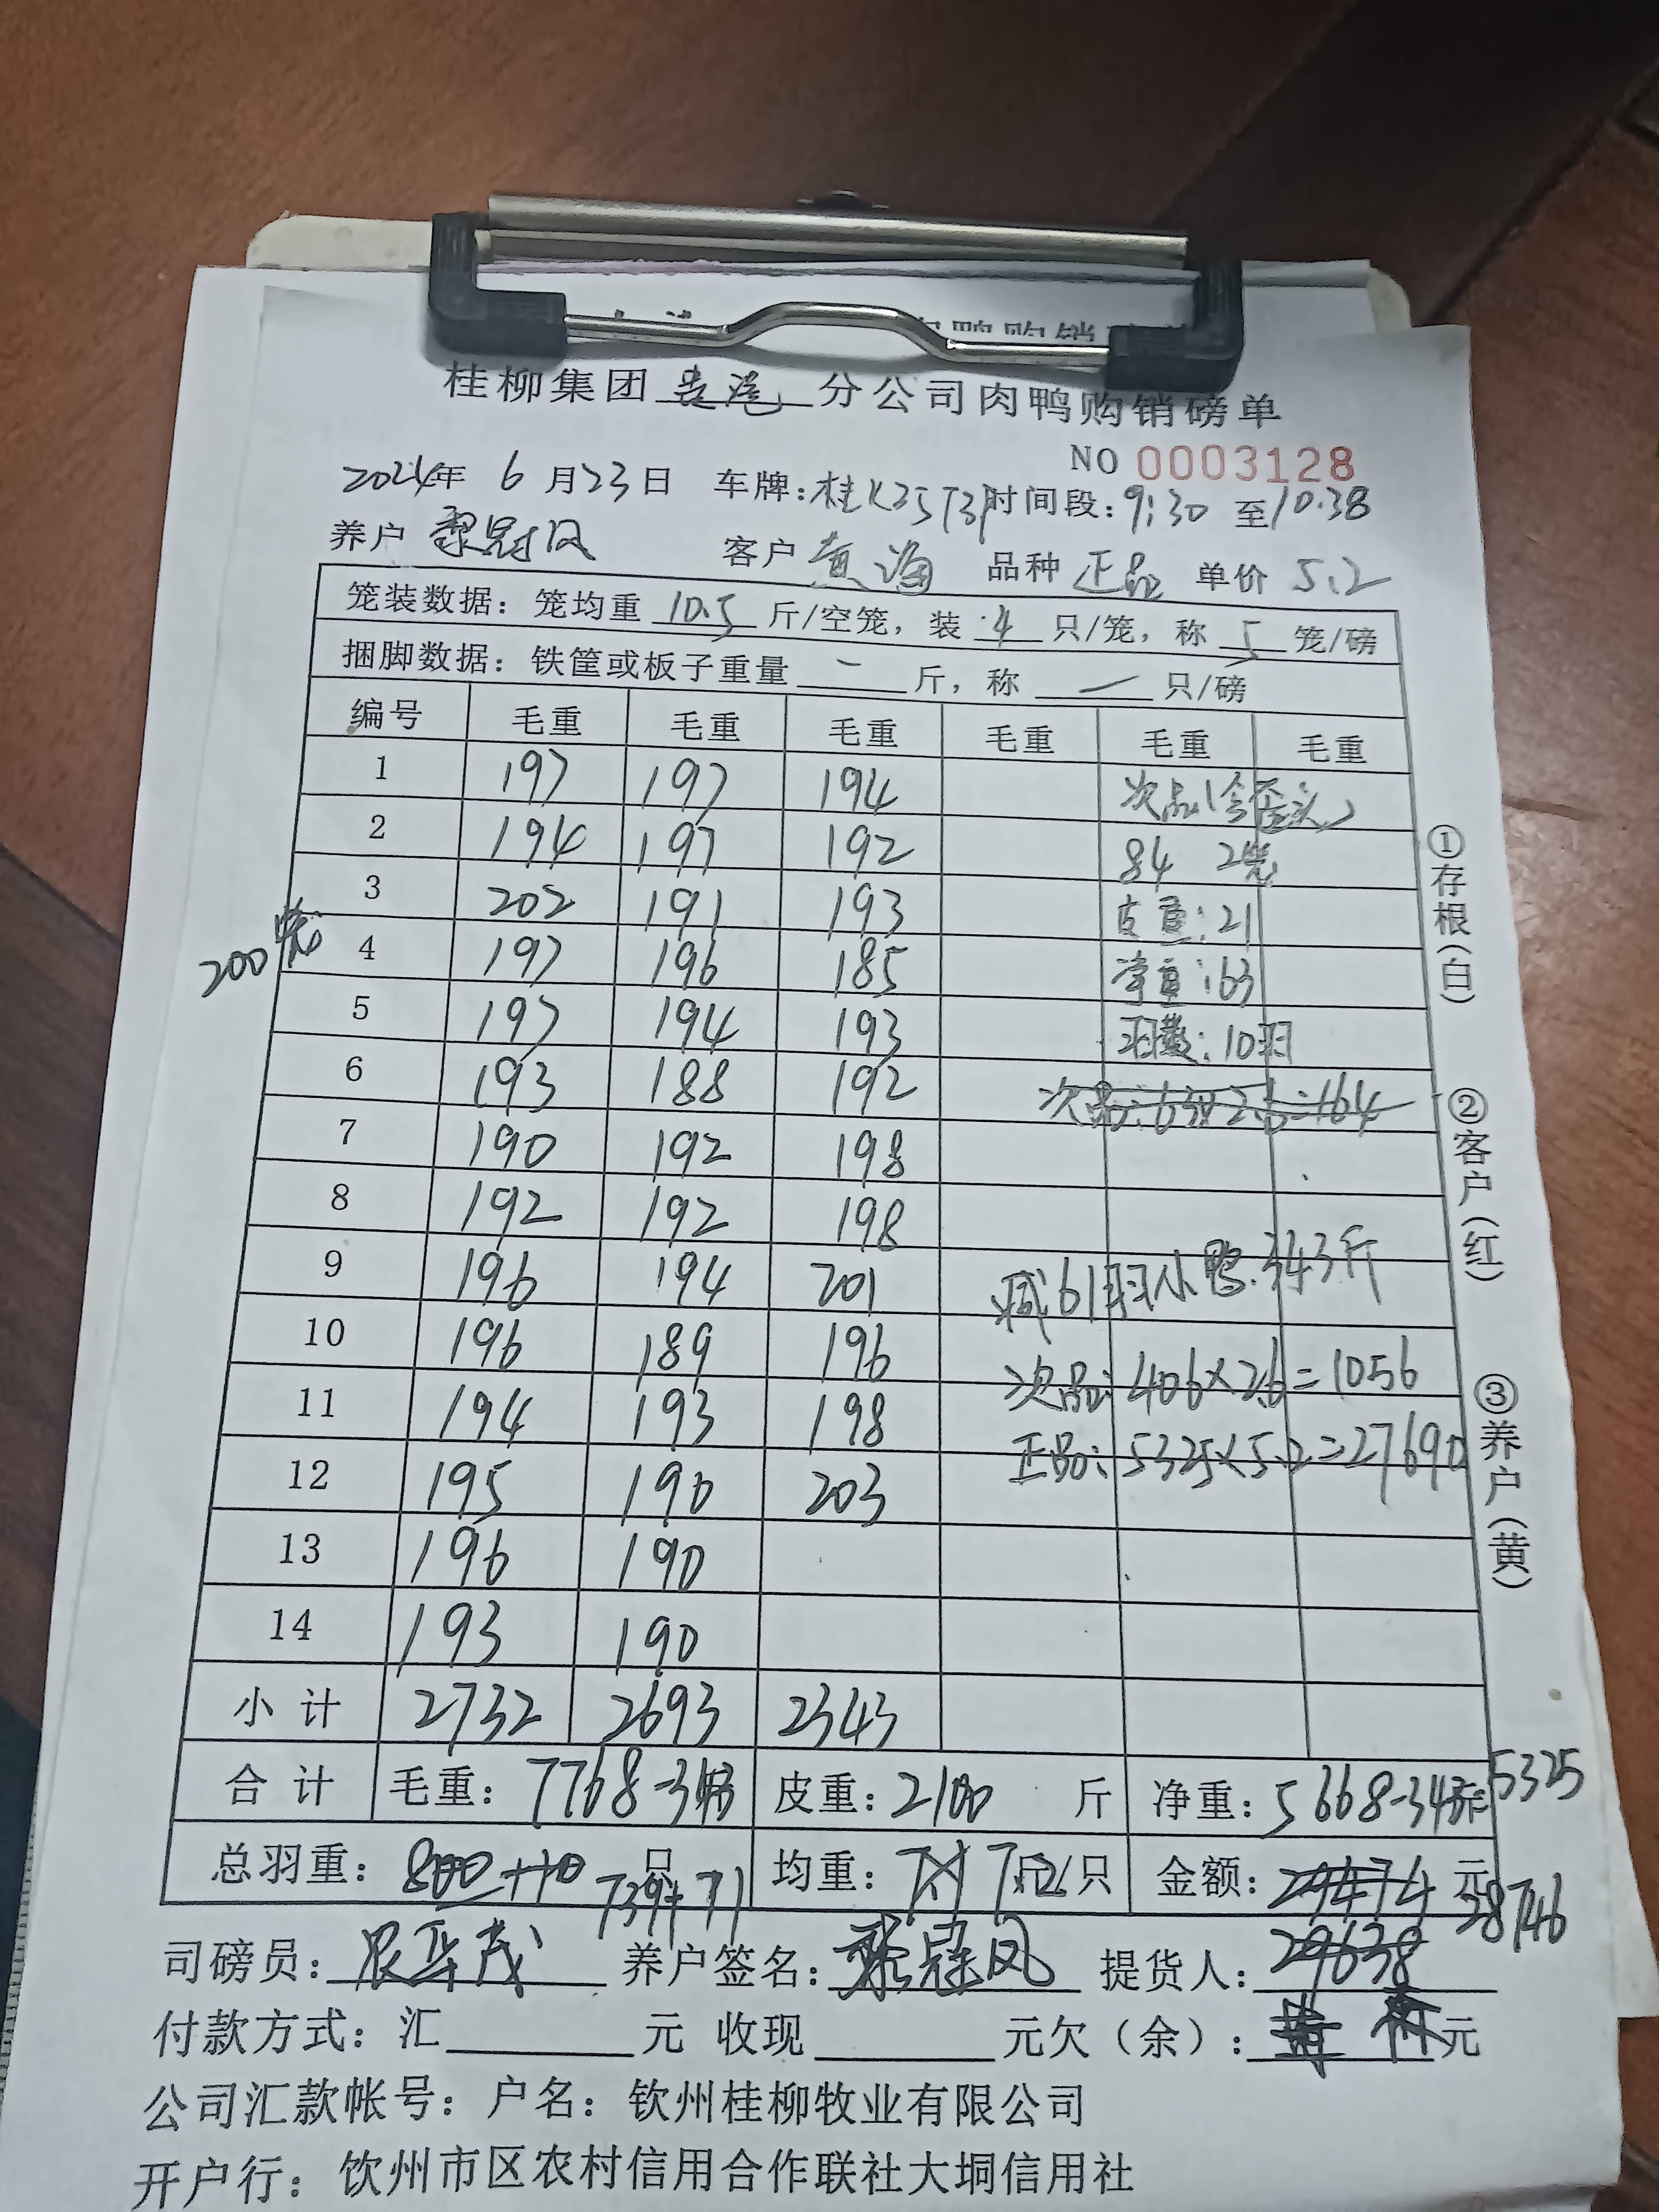 桂柳集团 分公司肉鸭购销磅单
NO 0003128
2024年 6月23日 车牌:桂K 时间段:9:30 至10:38
养户 黎冠凤 客户 黄海 品种 正品 单价 5.2
笼装数据：笼均重 10.5 斤/空笼，装 4 只/笼，称 5 笼/磅
捆脚数据：铁筐或板子重量 — 斤，称 — 只/磅
编号 毛重 毛重 毛重 毛重 毛重 毛重
1 197 197 194 次品(含歪头)
2 194 197 192 84 2笼
3 202 191 193 皮重:21
200笼
4 197 196 185 净重:63
5 197 194 193 羽数:10羽
6 193 188 192 次品:63×2.6=164
7 190 192 198
8 192 192 198
9 196 194 201 减61羽小鸭.343斤
10 196 189 196 次品:406×2.6=1056
11 194 193 198 正品:5325×5.2=27690
12 195 190 203
13 196 190
14 193 190
小计 2732 2693 2343
合计 毛重：7768-343 皮重：2100 斤 净重：5668-343斤 5325
总羽重：800+10 只 739+71 均重： 7.2斤/只 金额：29474 元 28746
29638
司磅员： 养户签名：黎冠凤 提货人：
付款方式：汇 元 收现 元欠（余）： 元
公司汇款帐号：户名：钦州桂柳牧业有限公司
开户行：钦州市区农村信用合作联社大垌信用社
①存根(白)
②客户(红)
③养户(黄)